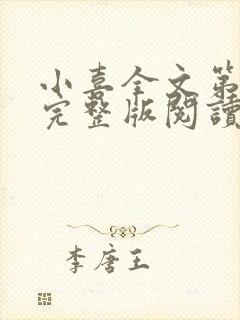 小喜全文第
完整版閱讀
李唐王